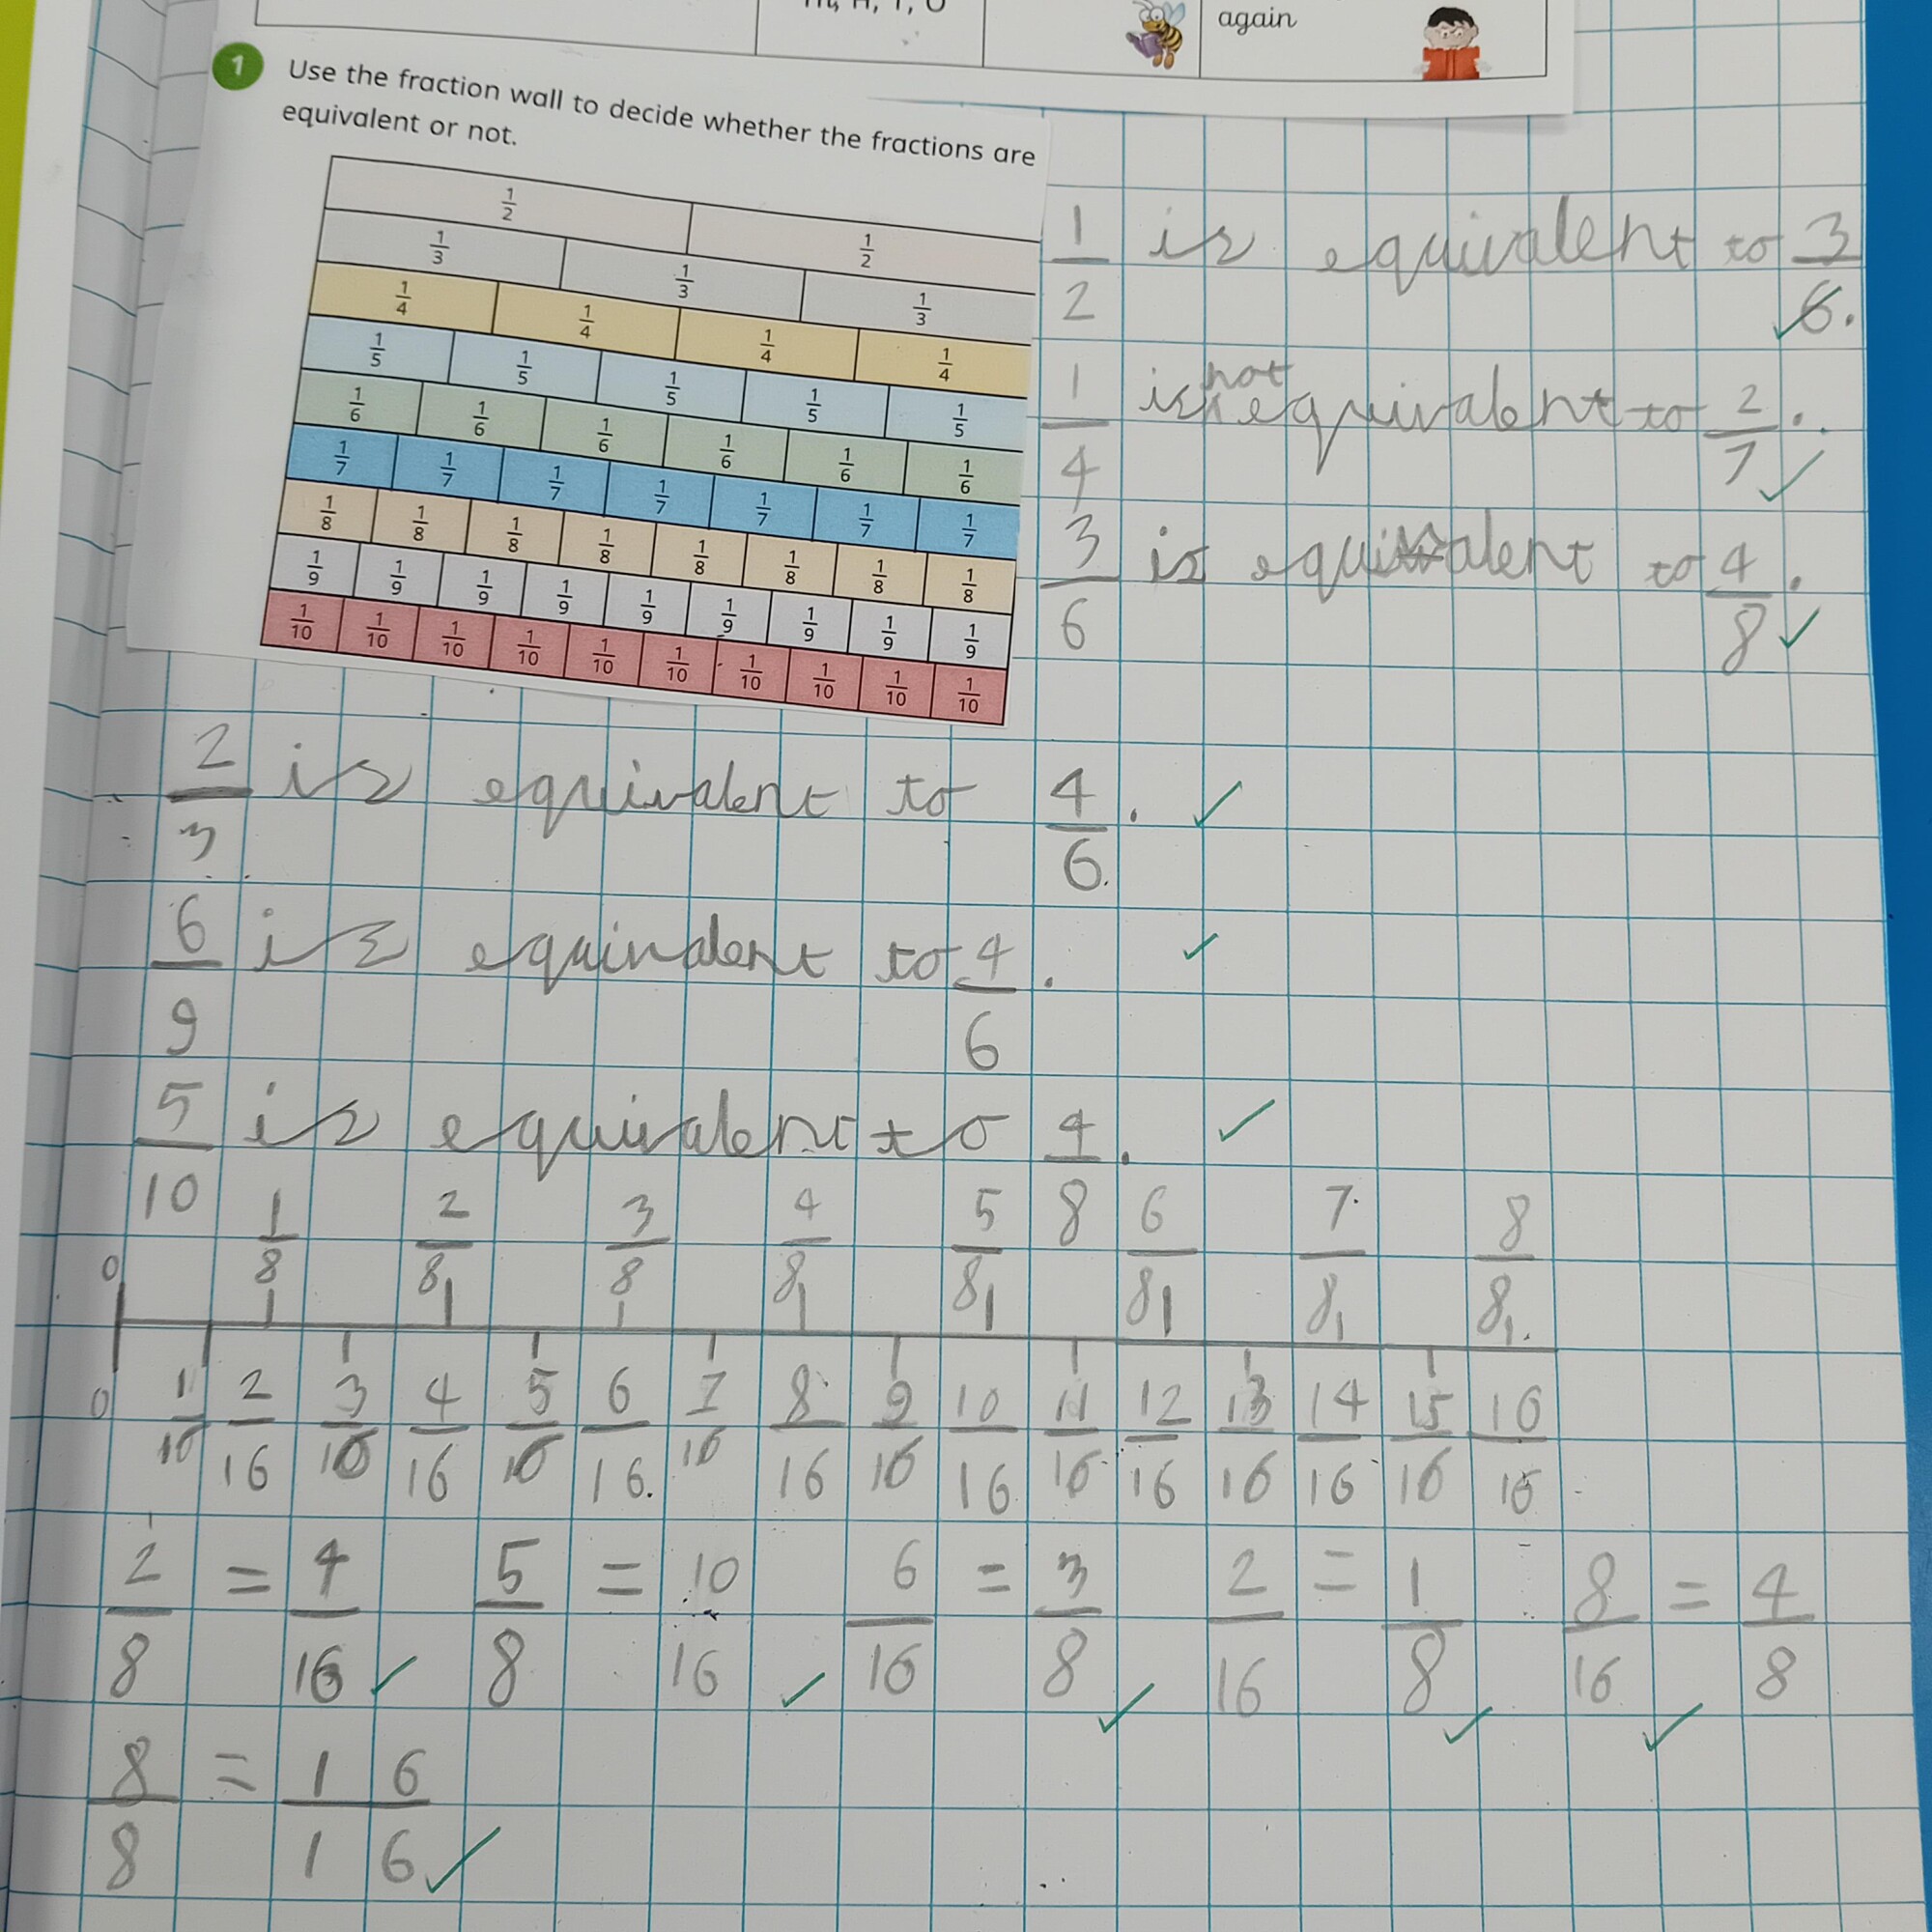 Th, H, T, O
again
1 Use the fraction wall to decide whether the fractions are
equivalent or not.
1/2 1/2
1/3 1/3 1/3
1/4 1/4 1/4 1/4
1/5 1/5 1/5 1/5 1/5
1/6 1/6 1/6 1/6 1/6 1/6
1/7 1/7 1/7 1/7 1/7 1/7 1/7
1/8 1/8 1/8 1/8 1/8 1/8 1/8 1/8
1/9 1/9 1/9 1/9 1/9 1/9 1/9 1/9 1/9
1/10 1/10 1/10 1/10 1/10 1/10 1/10 1/10 1/10 1/10
1/2 is equivalent to 3/6.
1/4 is not equivalent to 2/7.
3/6 is equivalent to 4/8.
2/3 is equivalent to 4/6.
6/9 is equivalent to 4/6.
5/10 is equivalent to 4/8.
0 1/8 2/8 3/8 4/8 5/8 6/8 7/8 8/8
0 1/16 2/16 3/16 4/16 5/16 6/16 7/16 8/16 9/16 10/16 11/16 12/16 13/16 14/16 15/16 16/16
2/8 = 4/16 5/8 = 10/16 6/16 = 3/8 2/16 = 1/8 8/16 = 4/8
8/8 = 16/16